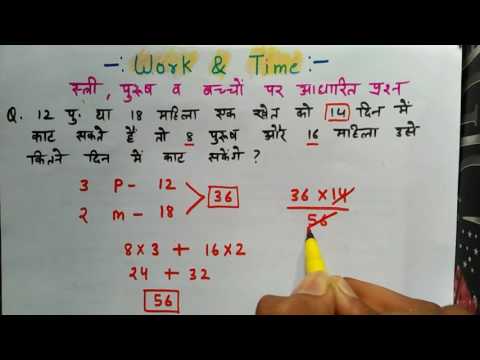 -: Work & Time :-
स्त्री, पुरूष व बच्चों पर आधारित प्रश्न
Q. 12 पु. या 18 महिला एक खेत को 14 दिन में
काट सकते हैं तो 8 पुरूष और 16 महिला उसे
कितने दिन में काट सकेंगे ?
3 P - 12
36
2 m - 18
8×3 + 16×2
24 + 32
56
36×14
56